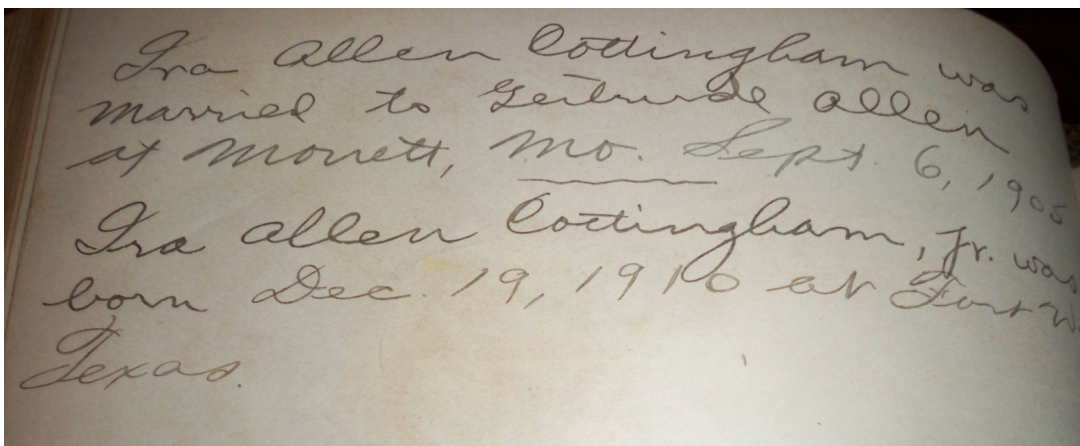 Ira Allen Cottingham was
married to Gertrude Allen
at Monett, Mo. Sept. 6, 1905
Ira Allen Cottingham, Jr. was
born Dec. 19, 1910 at Fort W
Texas.